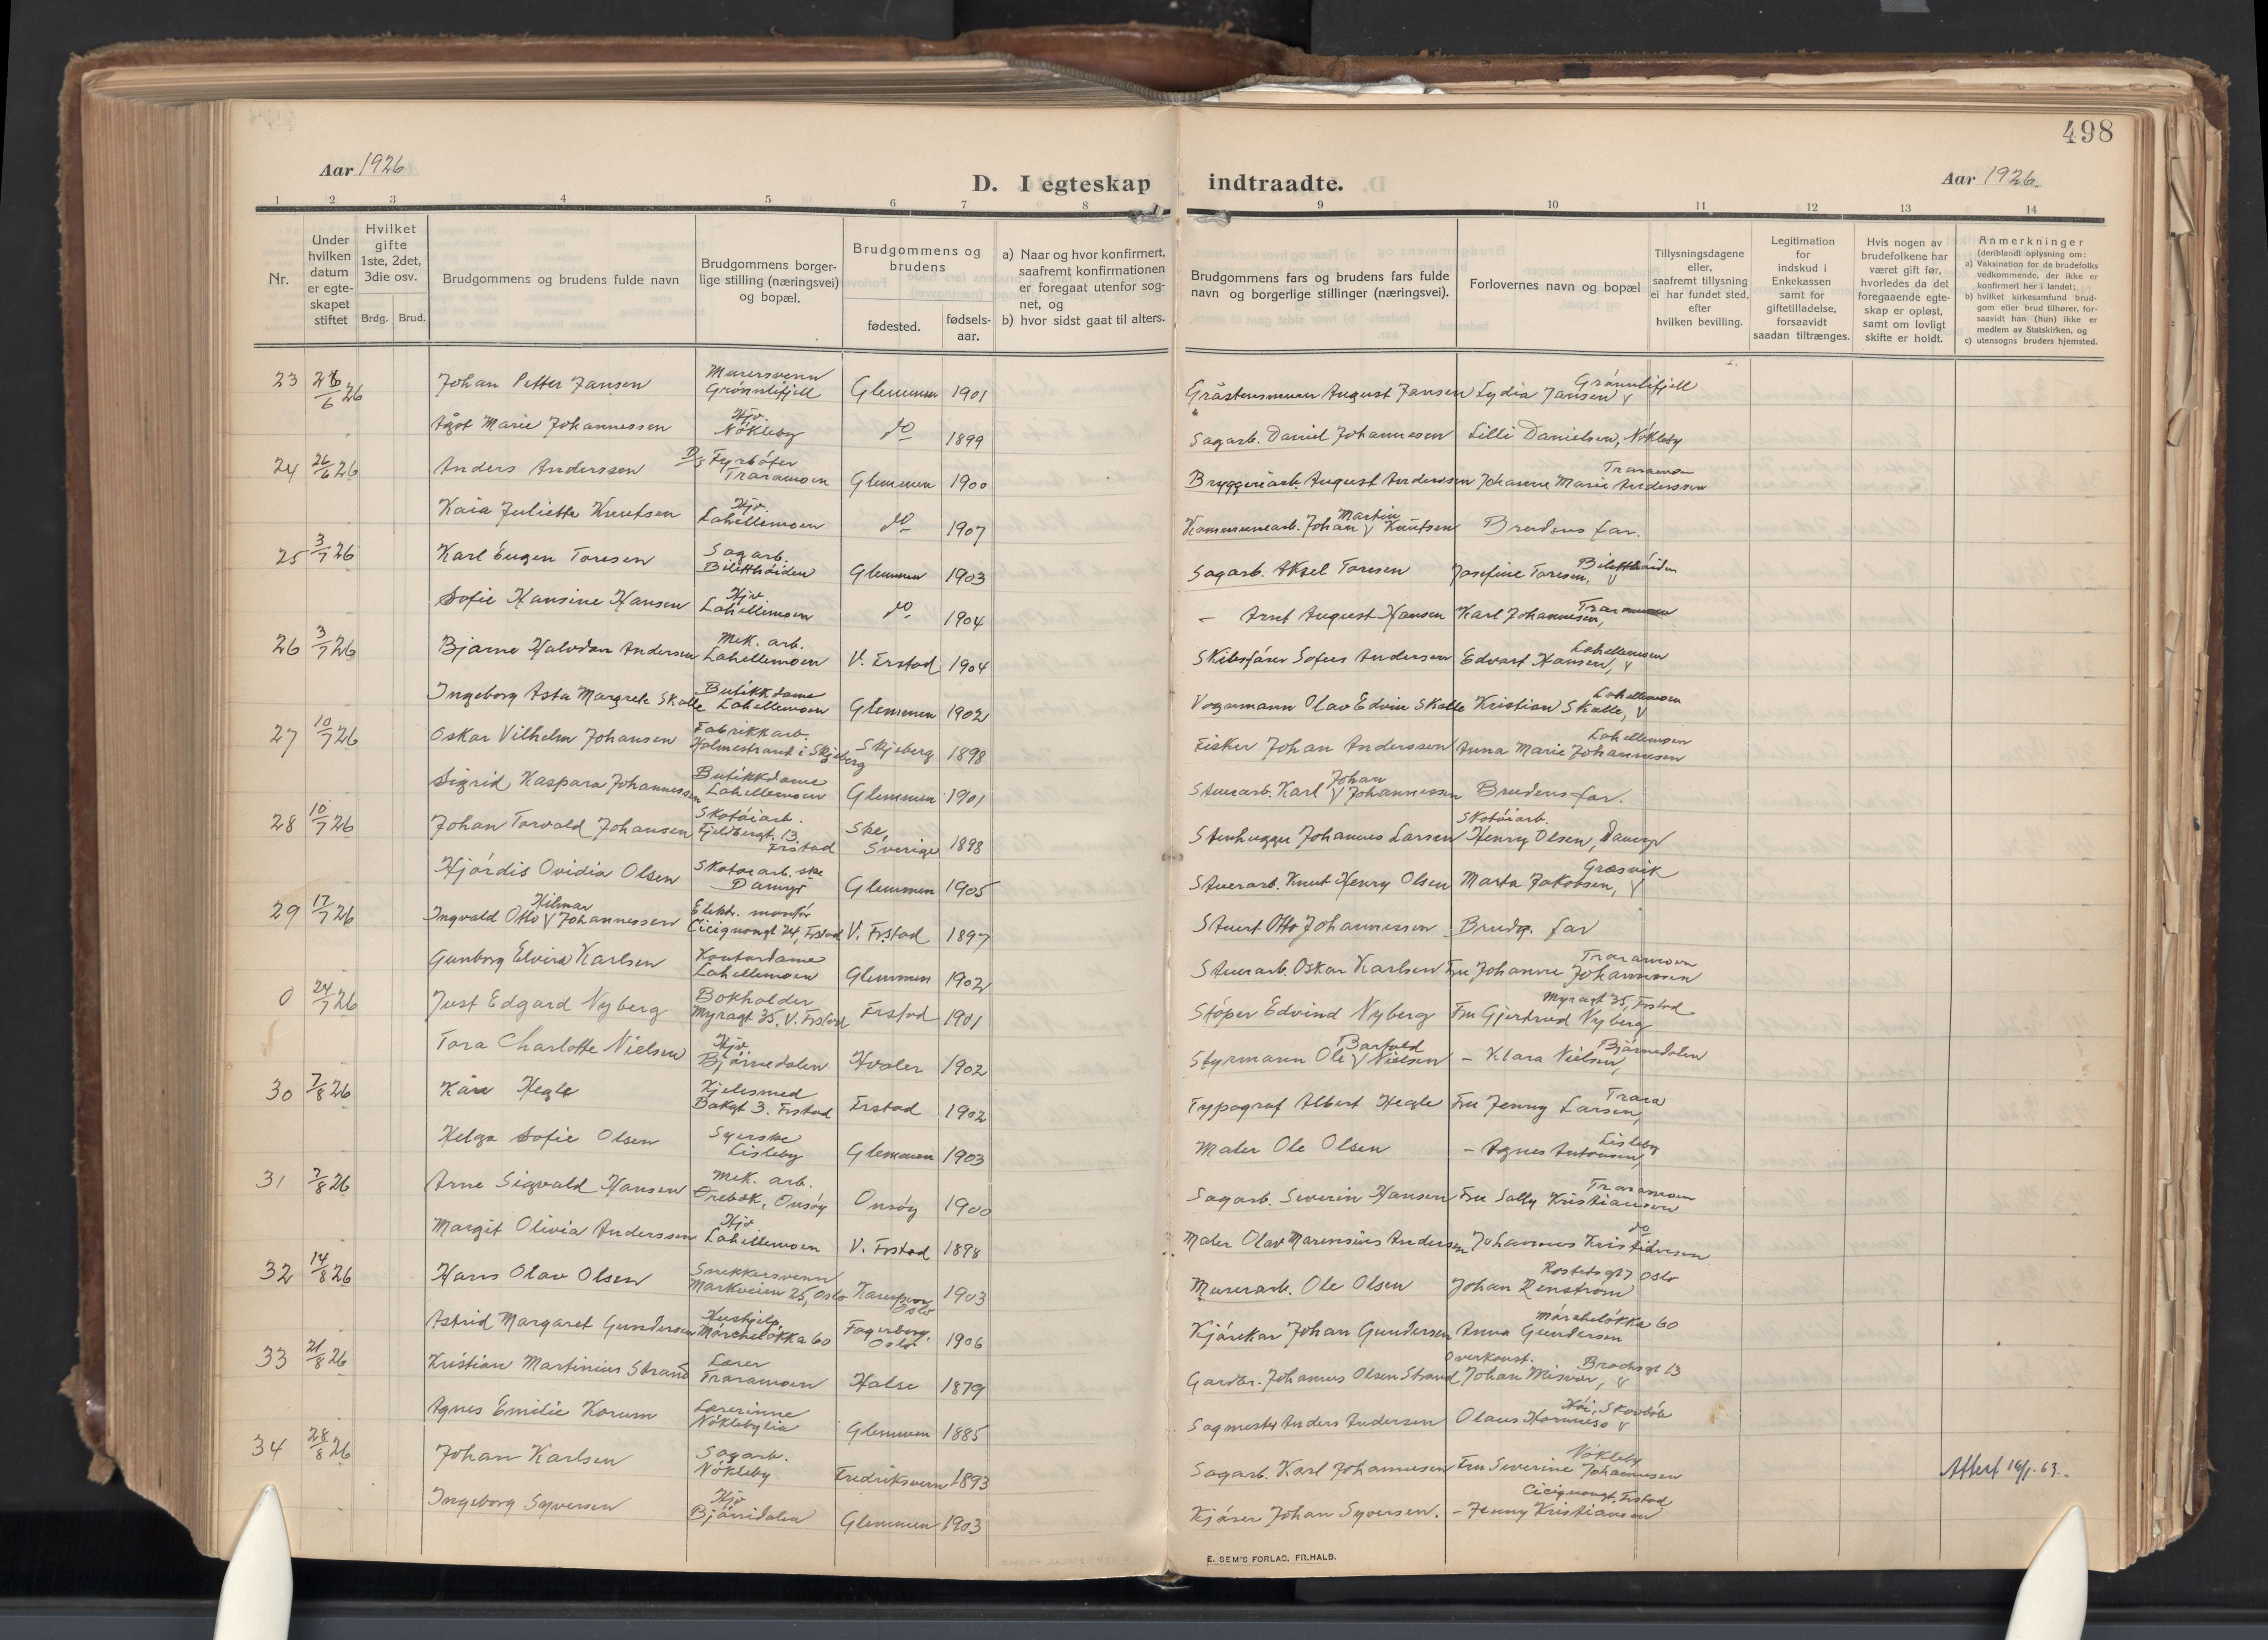 498
Aar 1926
D. I egteskap indtraadte.
Aar 1926.
1 2 3 4 5 6 7 8 9 10 11 12 13 14
Nr.
Under hvilken datum er egte-skapet stiftet
Hvilket gifte 1ste, 2det, 3die osv.
Brdg. Brud.
Brudgommens og brudens fulde navn
Brudgommens borger-lige stilling (næringsvei) og bopæl.
Brudgommens og brudens
fødested. fødsels-aar.
a) Naar og hvor konfirmert, saafremt konfirmationen er foregaat utenfor sog-net, og
b) hvor sidst gaat til alters.
Brudgommens fars og brudens fars fulde navn og borgerlige stillinger (næringsvei).
Forlovernes navn og bopæl
Tillysningsdagene eller, saafremt tillysning ei har fundet sted, efter hvilken bevilling.
Legitimation for indskud i Enkekassen samt for giftetilladelse, forsaavidt saadan tiltrænges.
Hvis nogen av brudefolkene har været gift før, hvorledes da det foregaaende egte-skap er opløst, samt om lovligt skifte er holdt.
Anmerkninger (deriblandt oplysning om:
a) Vaksination for de brudefolks vedkommende, der ikke er konfirmert her i landet;
b) hvilket kirkesamfund brud-gom eller brud tilhører, for-saavidt han (hun) ikke er medlem av Statskirken, og
c) utensogns bruders hjemsted.
23 26/6 26 Johan Petter Jansen Murersvenn Grønnlifjell Glemmen 1901 August Jansen Lydia Jansen, Grønnlifjell
Ågot Marie Johannessen Hjv. Nøkleby do 1899 Sagarb. Daniel Johannesen Lilli Danielsen, Nøkleby
24 26/6 26 Anders Anderssen D/s Fyrbøter Traramoen Glemmen 1900 Bryggeriarb. August Anderssen Johanne Marie Anderssen Traramoen
Kaia Juliette Knutsen Hjv. Lahellemoen do 1907 Kommunearb. Johan Martin Knutsen Brudens far.
25 3/7 26 Karl Eugen Toresen Sagarb. Biletthøiden Glemmen 1903 Sagarb. Aksel Toresen Josefine Toresen, Biletthøiden
Sofie Hansine Hansen Hjv Lahellemoen do 1904 – Arnt August Hansen Karl Johannesen, Traramoen
26 3/7 26 Bjarne Halvdan Andersen Mek. arb. Lahellemoen V. Frstad 1904 Skibsfører Sofus Andersen Edvart Hansen, Lahellemoen
Ingeborg Asta Margrete Skolle Butikkdame Lahellemoen Glemmen 1902 Vognmann Olav Edvin Skolle Kristian Skolle, Lahellemoen
27 10/7 26 Oskar Vilhelm Johansen Fabrikkarb. Holmestrand i Skjeberg Skjeberg 1898 Fisker Johan Anderssen Anna Marie Johannesen Lahellemoen
Sigrid Kaspara Johannessen Butikkdame Lahellemoen Glemmen 1901 Stuerarb. Karl Johan Johannessen Brudens far.
28 10/7 26 Johan Torvald Johansen Skotøiarb. Fjeldbergt. 13 Frstad Ske, Sverige 1898 Stenhugger Johannes Larsen Skotøiarb. Henry Olsen, Damyr
Hjørdis Ovidia Olsen Skotøiarb.ske Damyr Glemmen 1905 Stuerarb. Knut Henry Olsen Marta Jakobsen, Græsvik
29 17/7 26 Ingvald Otto Hilmar Johannessen Elektr. montør Cicignongt 24, Frstad V. Frstad 1897 Stuert Otto Johannessen Brudg. far
Gunborg Elvira Karlsen Kontordame Lahellemoen Glemmen 1902 Stuerarb. Oskar Karlsen Fru Johanne Johannessen Traramoen
0 24/7 26 Just Edgard Nyberg Bokholder Myragt 35, V. Frstad Frstad 1901 Støper Edvind Nyberg Fru Gjertrud Nyberg Myragt 35, Frstad
Tora Charlotte Nielsen Hjv. Bjørnedalen Hvaler 1902 Styrmann Ole Bartold Nielsen – Klara Nielsen, Bjørnedalen
30 7/8 26 Kåre Hegle Kjelesmed Bakgt 3. Frstad Frstad 1902 Typograf Albert Hegle Fru Jenny Larsen, Trara
Helga Sofie Olsen Syerske Lisleby Glemmen 1903 Maler Ole Olsen – Agnes Antonsen, Lisleby
31 7/8 26 Arne Sigvald Hansen Mek. arb. Ørebæk, Onsøy Onsøy 1900 Sagarb. Severin Hansen Fru Sally Kristiansen Traramoen
Margit Olivia Anderssen Hjv Lahellemoen V. Frstad 1898 Maler Olav Marensius Andersen Johannes Kristiansen do
32 14/8 26 Hans Olav Olsen Snekkersvenn Markveien 25, Oslo Kampen Oslo 1903 Murerarb. Ole Olsen Johan Renstrøm Oslo
Astrid Margaret Gundersen Hushjelp, Mørcheløkka 60 Fagerborg, Oslo 1906 Kjørekar Johan Gundersen Anna Gundersen Mørcheløkka 60
33 21/8 26 Kristian Martinius Strand Lærer Traramoen Halse 1879 Gardbr. Johannes Olsen Strand Overkonst. Johan Misvær, Brochsgt 13
Agnes Emilie Korum Lærerinne Nøklebylia Glemmen 1885 Sagmester Anders Andersen Olaus
34 28/8 26 Johan Karlsen Sagarb. Nøkleby Fredriksvern 1893 Sagarb. Karl Johannesen Fru Severine Johannesen Nøkleby Attest 16/1-63.
Ingeborg Syversen Hjv Bjørnedalen Glemmen 1903 Kjører Johan Syversen. – Jenny Kristiansen Cicignongt. Frstad
E. SEM'S FORLAG, FR.HALD.